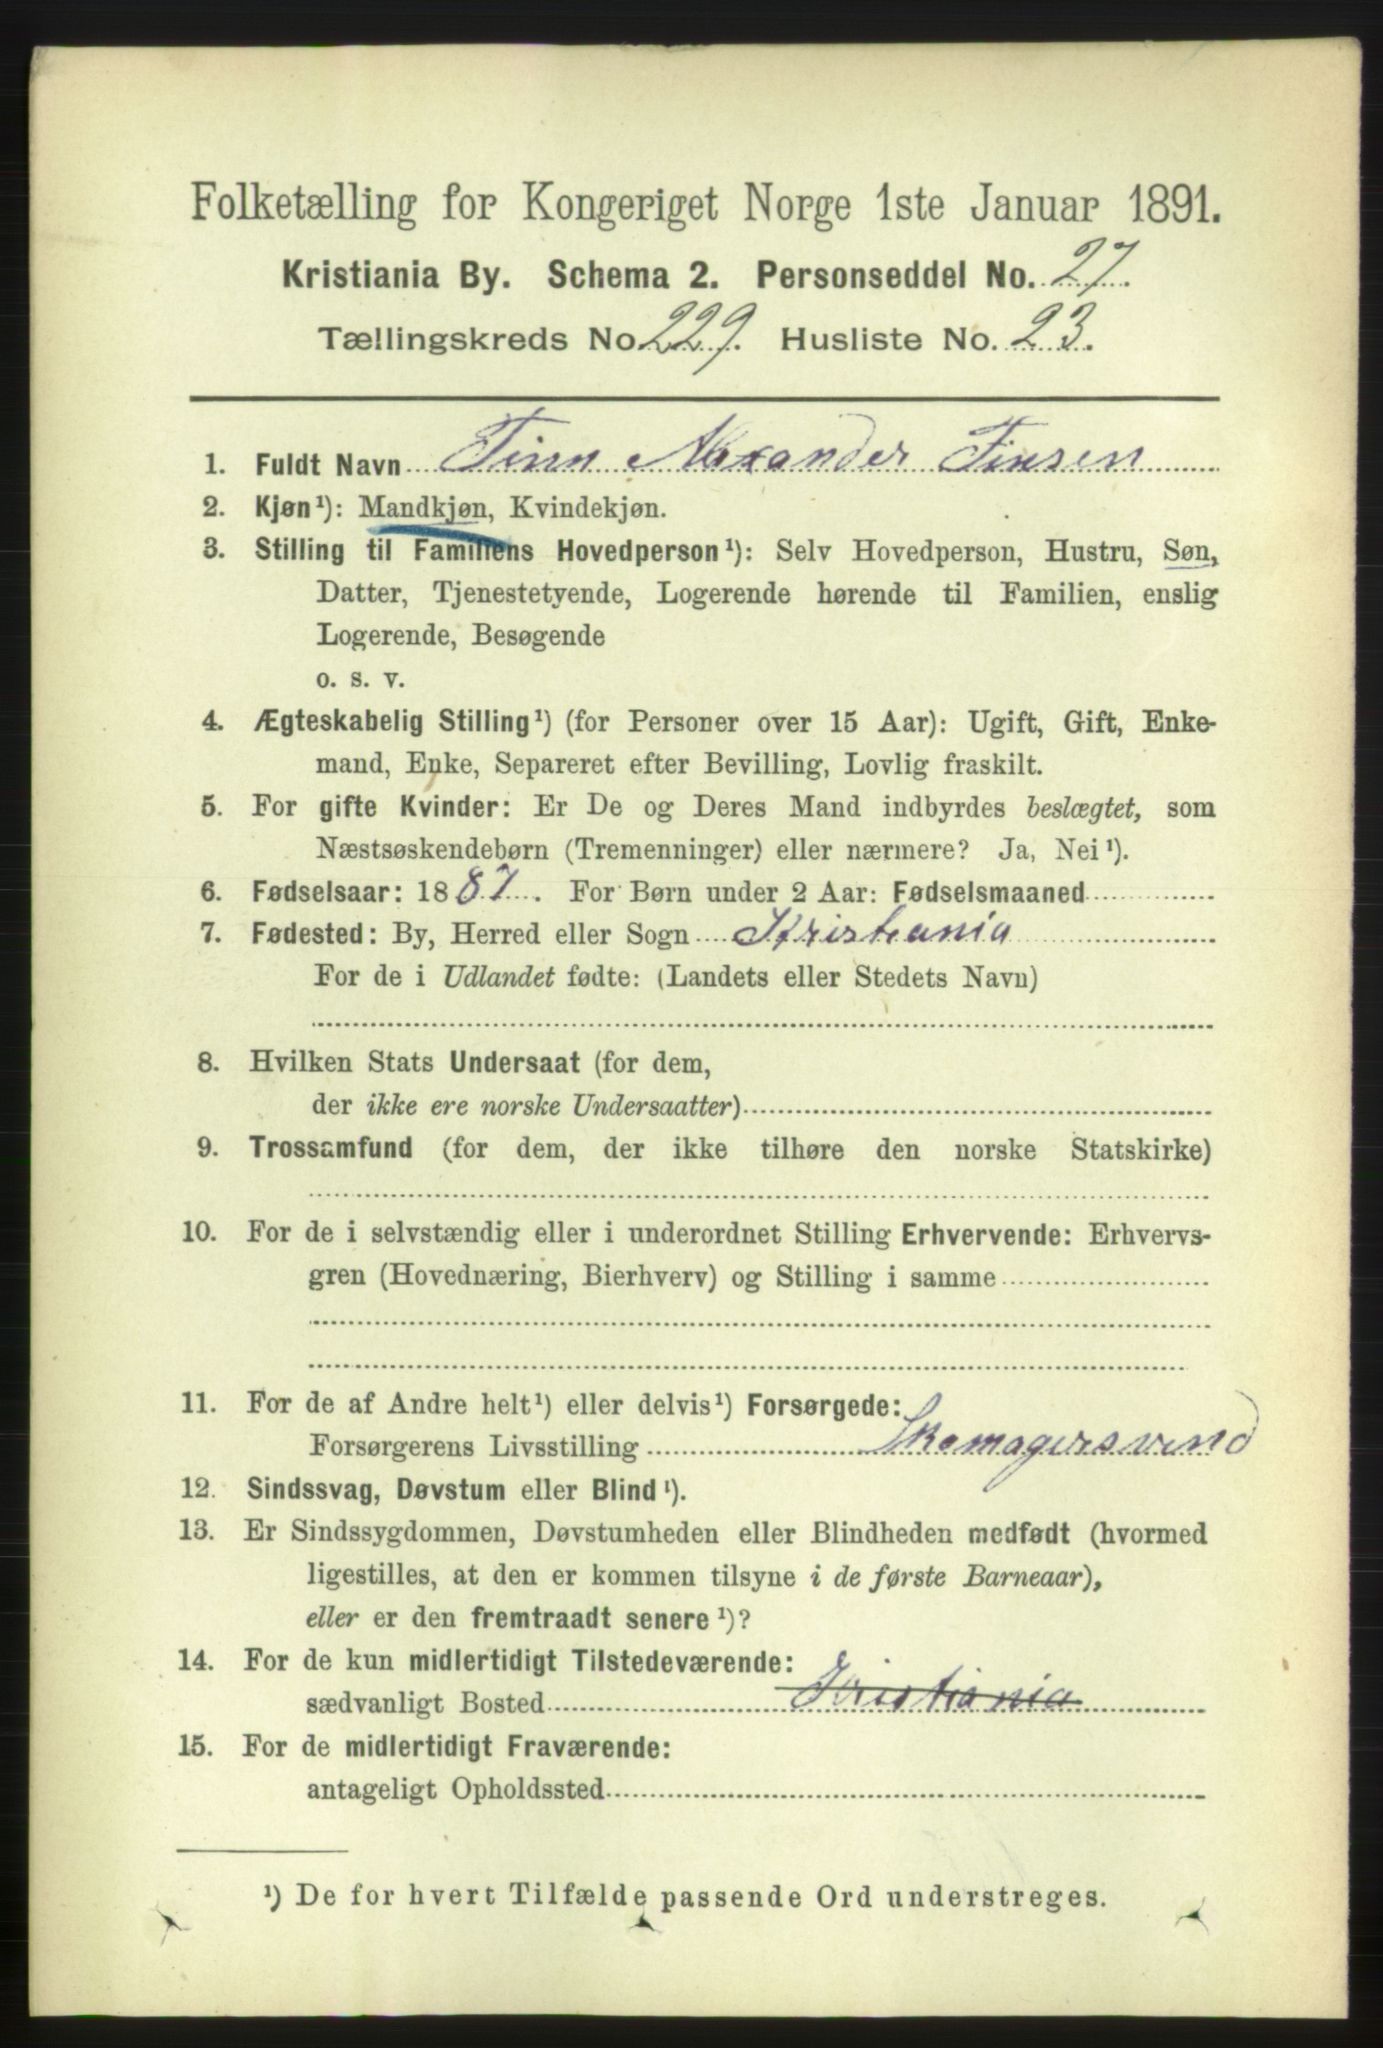 Folketælling for Kongeriget Norge 1ste Januar 1891.
Kristiania By. Schema 2. Personseddel No. 27.
Tællingskreds No. 229. Husliste No. 23.
1. Fuldt Navn Finn Alexander Finsen
2. Kjøn¹): Mandkjøn, Kvindekjøn.
3. Stilling til Familiens Hovedperson¹): Selv Hovedperson, Hustru, Søn,
Datter, Tjenestetyende, Logerende hørende til Familien, enslig
Logerende, Besøgende
o. s. v.
4. Ægteskabelig Stilling¹) (for Personer over 15 Aar): Ugift, Gift, Enke-
mand, Enke, Separeret efter Bevilling, Lovlig fraskilt.
5. For gifte Kvinder: Er De og Deres Mand indbyrdes beslægtet, som
Næstsøskendebørn (Tremenninger) eller nærmere? Ja, Nei¹).
6. Fødselsaar: 1887. For Børn under 2 Aar: Fødselsmaaned
7. Fødested: By, Herred eller Sogn Kristiania
For de i Udlandet fødte: (Landets eller Stedets Navn)
8. Hvilken Stats Undersaat (for dem,
der ikke ere norske Undersaatter)
9. Trossamfund (for dem, der ikke tilhøre den norske Statskirke)
10. For de i selvstændig eller i underordnet Stilling Erhvervende: Erhvervs-
gren (Hovednæring, Bierhverv) og Stilling i samme
11. For de af Andre helt¹) eller delvis¹) Forsørgede:
Forsørgerens Livsstilling Skomagersvend
12. Sindssvag, Døvstum eller Blind¹).
13. Er Sindssygdommen, Døvstumheden eller Blindheden medfødt (hvormed
ligestilles, at den er kommen tilsyne i de første Barneaar),
eller er den fremtraadt senere¹)?
14. For de kun midlertidigt Tilstedeværende:
sædvanligt Bosted Kristiania
15. For de midlertidigt Fraværende:
antageligt Opholdssted
¹) De for hvert Tilfælde passende Ord understreges.